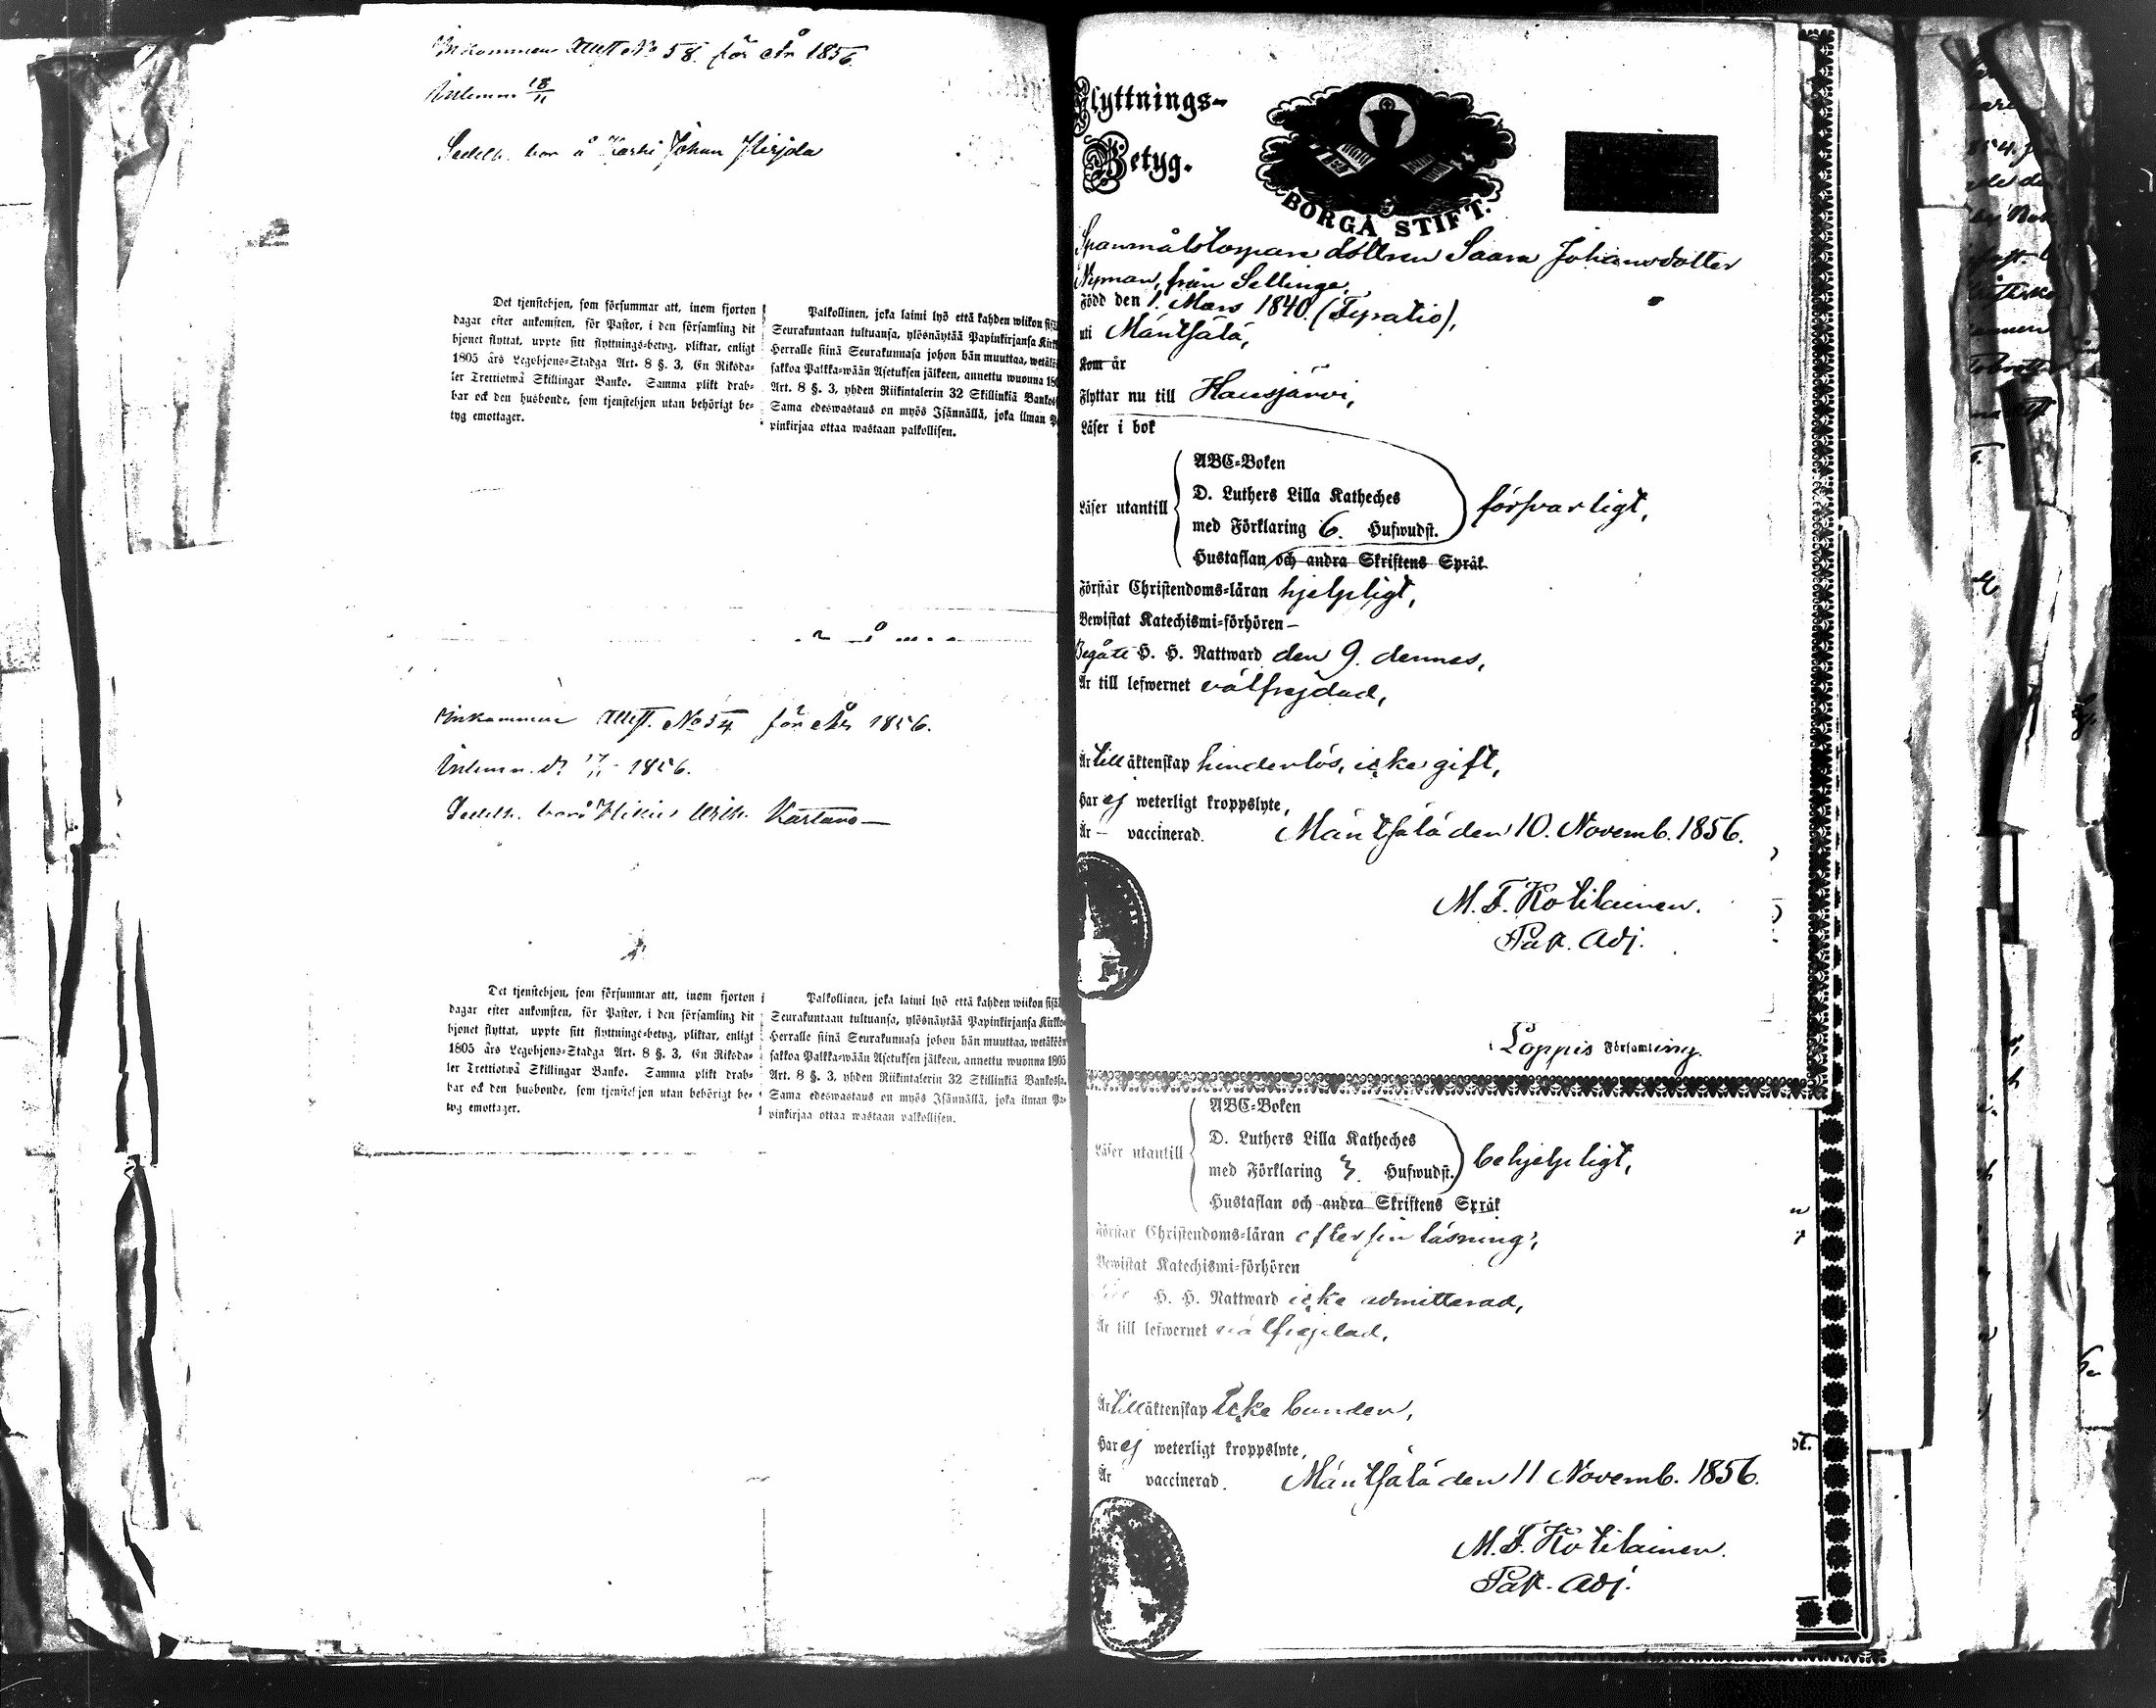 Inkommen Attest No 58. för År 1856.
Inlemn. 18/11
Sedeln. bor å Karhi Johan Hirjola
Det tjenstehjon, som försummar att, inom fjorton
dagar efter ankomsten, för Pastor, i den församling dit
hjonet flyttat, uppte sitt flyttnings-betyg, pliktar, enligt
1805 års Legohjons-Stadga Art. 8 §. 3, En Riksda-
ler Trettiotwå Skillingar Banko. Samma plikt drab-
bar ock den husbonde, som tjenstehjon utan behörigt be-
tyg emottager.
Palkollinen, joka laimi lyö että kahden wiikon
Seurakuntaan tultuansa, ylösnäytää Papinkirjansa
Herralle siinä Seurakunnasa johon hän muuttaa,
sakkoa Palkka-wään Asetuksen jälkeen, annettu wuonna
Art. 8 §. 3, yhden Riikintalerin 32 Skillinkiä
Sama edeswastaus on myös Isännällä, joka ilman
pinkirjaa ottaa wastaan palkollisen.
Inkommen Attest. No 54 för År 1856.
Inlemn. d. 17/11 1856.
Sedeln. bor å Hikiä Kartano
Det tjenstehjon, som försummar att, inom fjorton
dagar efter ankomsten, för Pastor, i den församling dit
hjonet flyttat, uppte sitt flyttnings-betyg, pliktar, enligt
1805 års Legohjons-Stadga Art. 8 §. 3, En Riksda-
ler Trettiotwå Skillingar Banko. Samma plikt drab-
bar ock den husbonde, som tjenstehjon utan behörigt be-
tyg emottager.
Palkollinen, joka laimi lyö että kahden wiikon
Seurakuntaan tultuansa, ylösnäytää Papinkirjansa
Herralle siinä Seurakunnasa johon hän muuttaa,
sakkoa Palkka-wään Asetuksen jälkeen, annettu wuonna 1805
Art. 8 §. 3, yhden Riikintalerin 32 Skillinkiä Bankossa.
Sama edeswastaus on myös Isännällä, joka ilman Pa-
pinkirjaa ottaa wastaan palkollisen.
Flyttnings-
Betyg.
BORGÅ STIFT.
Spanmålstorpare dottren Saara Johansdotter
Nyman, från Sellinge,
Född den 1. Mars 1840.
uti Mäntsälä,
Kom år
Flyttar nu till Hausjärvi,
Läser i bok
Läser utantill
ABC-Boken
D. Luthers Lilla Katheches
med Förklaring 6. Hufwudst.
Hustaflan och andra Skriftens Språk
försvarligt,
Förstår Christendoms-läran hjelpligt,
Bewistat Katechismi-förhören –
Begått H. H. Nattward den 9. dennes,
Är till lefwernet välfrejdad,
Är till äktenskap hinderlös, icke gift,
Har ej weterligt kroppslyte,
Är – vaccinerad. Mäntsälä den 10. Novemb. 1856.
M. F. Kotilainen.
Past. Adj.
Loppis Församling.
ABC-Boken
Läser utantill
D. Luthers Lilla Katheches
med Förklaring 3. Hufwudst.
Hustaflan och andra Skriftens Språk
behjelpligt,
Förstår Christendoms-läran efter sin läsning,
Bewistat Katechismi-förhören
H. H. Nattward icke admitterad,
Är till lefwernet välfrejdad,
Är till äktenskap icke bunden,
Har ej weterligt kroppslyte,
Är vaccinerad. Mäntsälä den 11 Novemb. 1856.
M. F. Kotilainen.
Past. Adj.